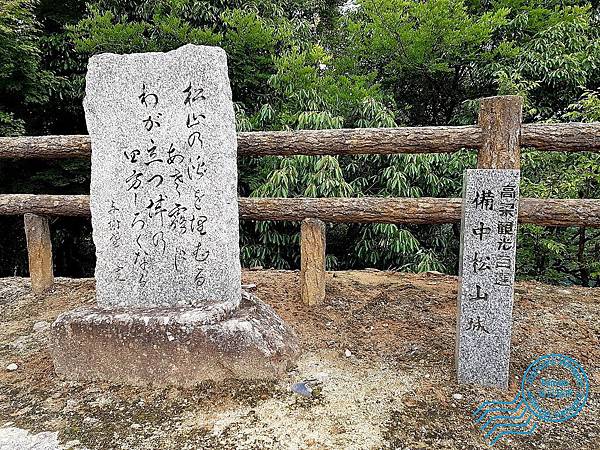 松山の渓を埋むる
あさ霧に
わが立つ城の
四方しろくなる
与謝野 寛
高梁観光
備中松山城